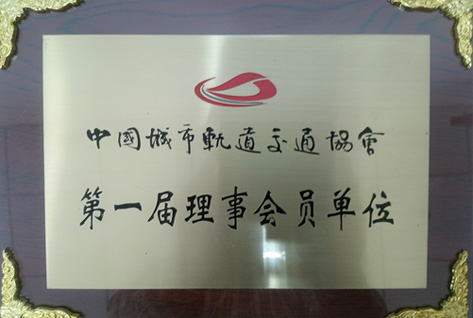 中國城市軌道交通協會
第一届理事会员单位